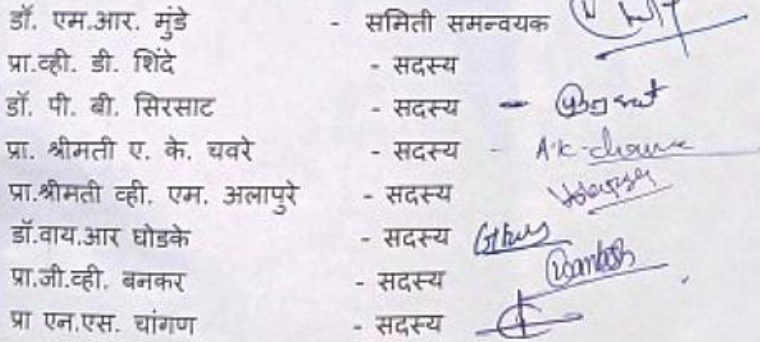 डॉ. एम.आर. मुंडे - समिती समन्वयक
प्रा.व्ही. डी. शिंदे - सदस्य
डॉ. पी. बी. सिरसाट - सदस्य -
प्रा. श्रीमती ए. के. चवरे - सदस्य - A.K.
प्रा.श्रीमती व्ही. एम. अलापुरे - सदस्य
डॉ.वाय.आर घोडके - सदस्य
प्रा.जी.व्ही. बनकर - सदस्य
प्रा एन.एस. चांगण - सदस्य